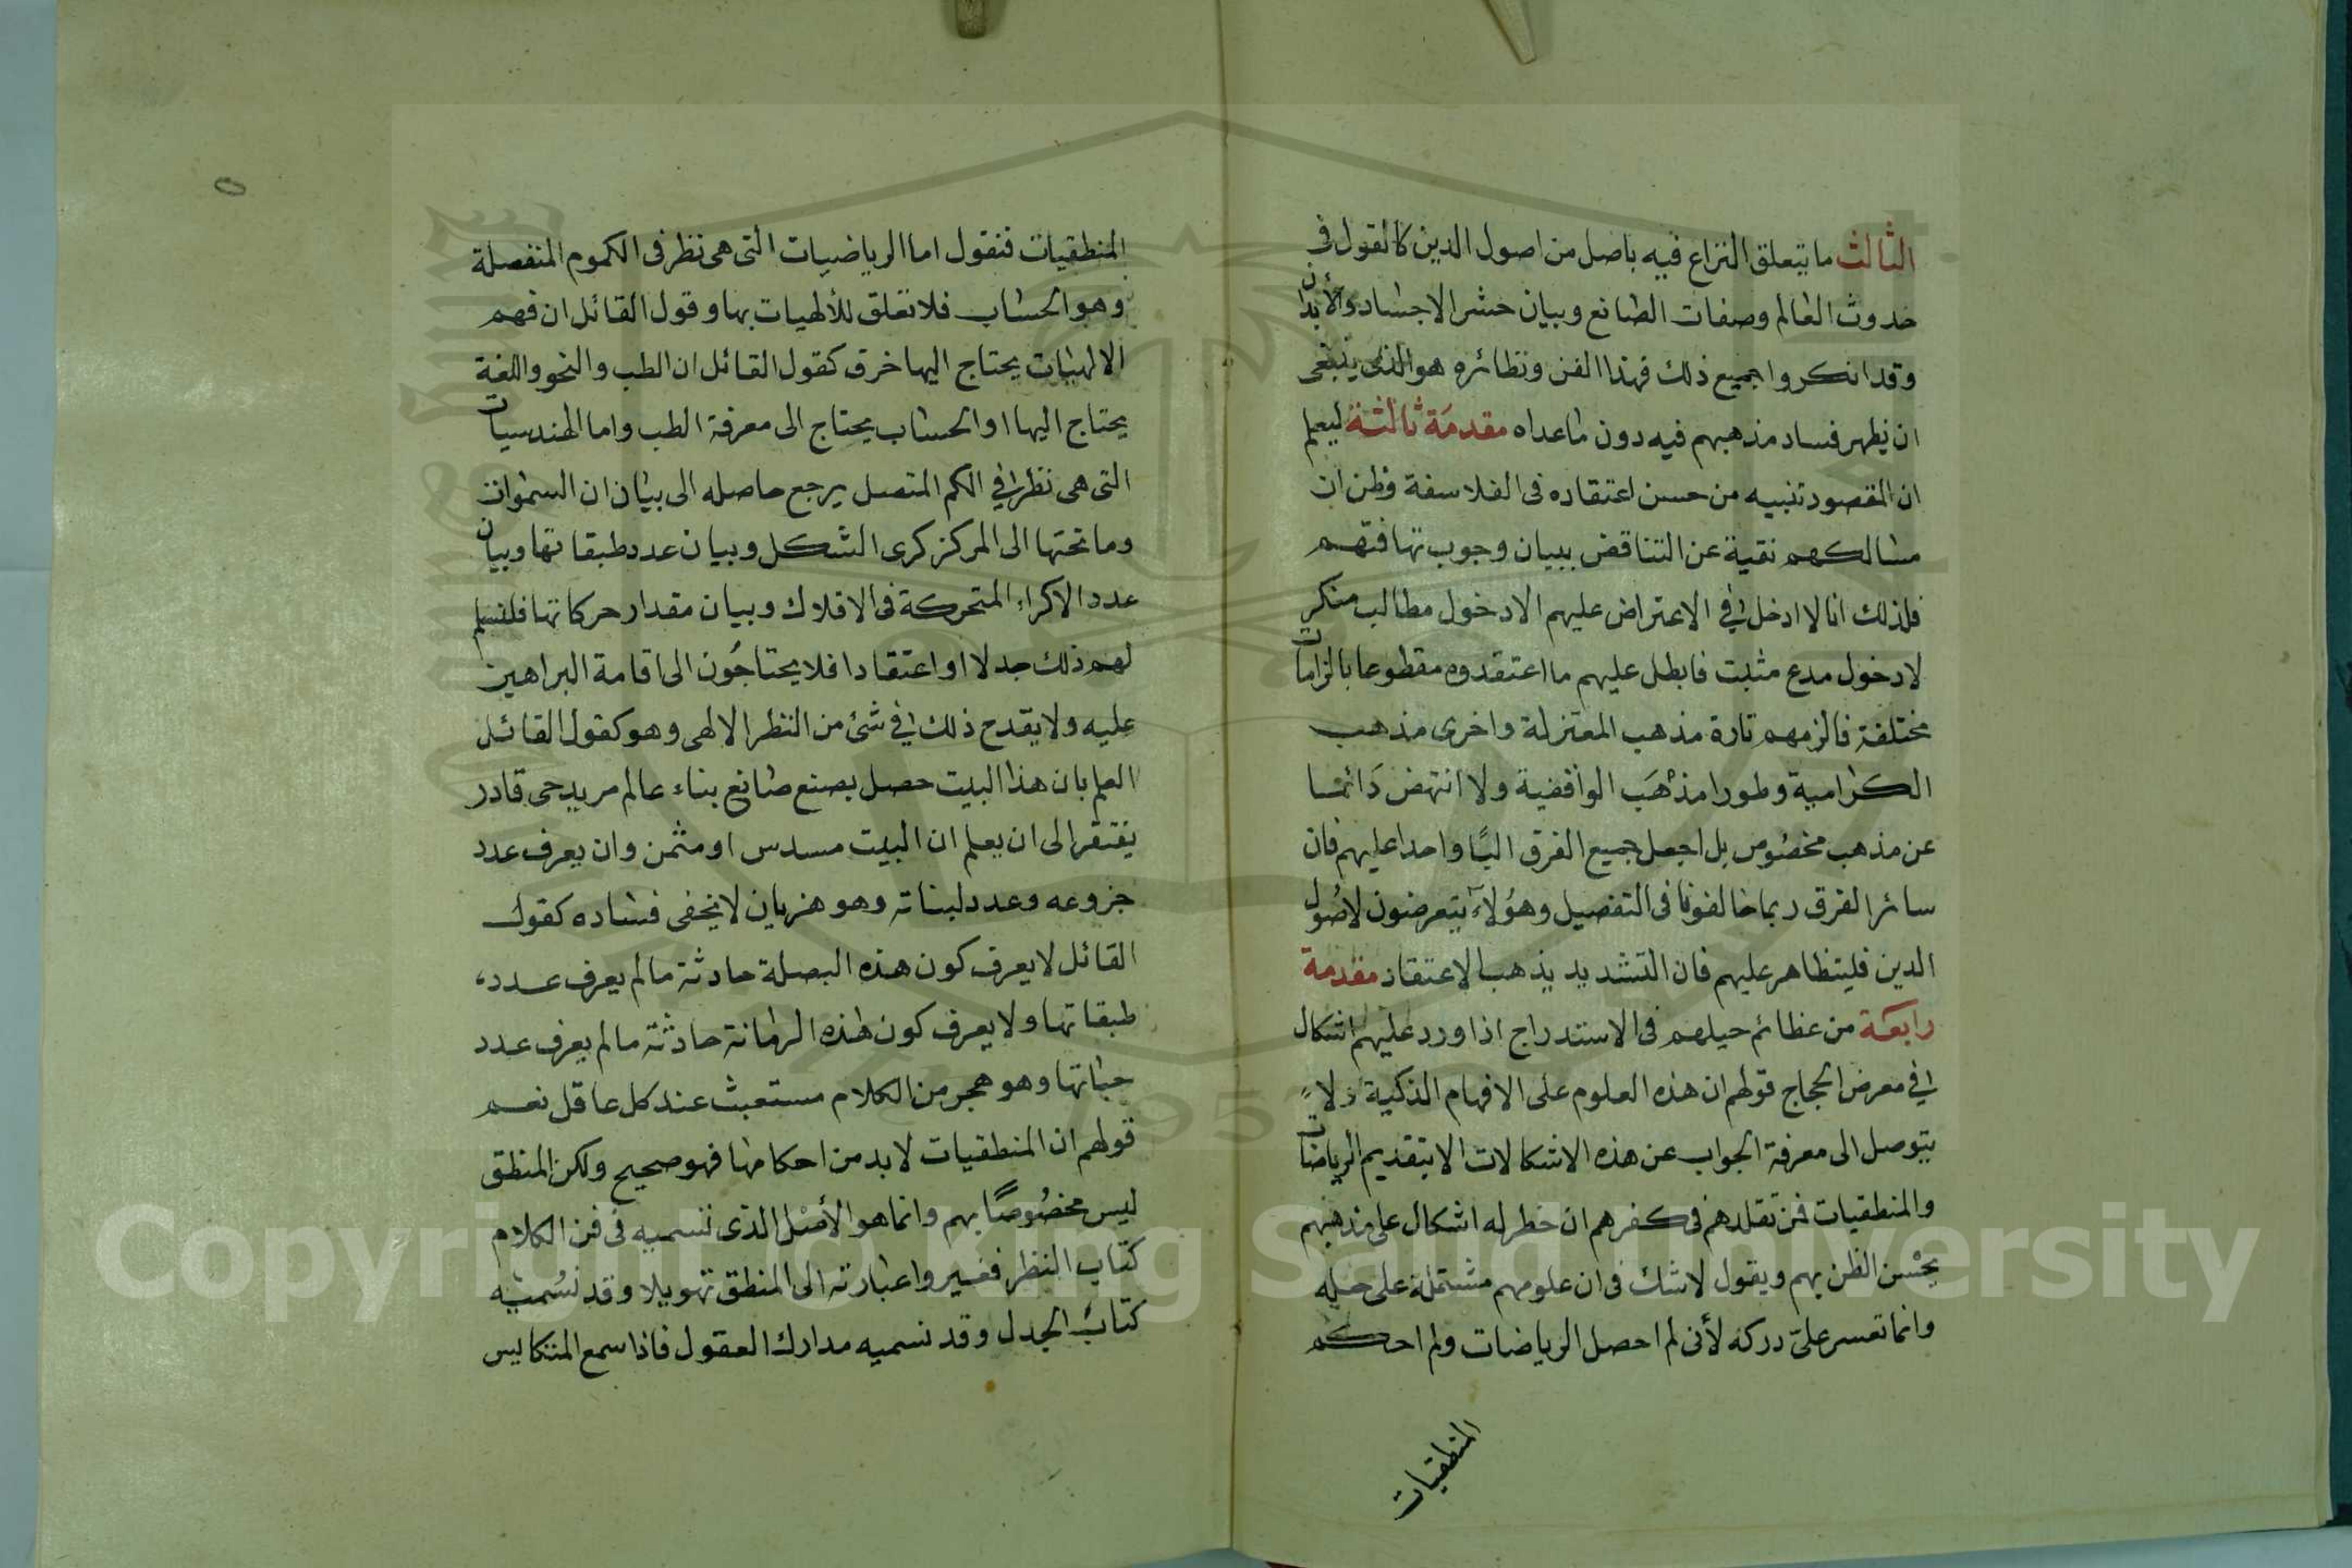 الثالث ما يتعلق النزاع فيه باصل من اصول الدين كالقول في
حدوث العالم وصفات الصانع وبيان حشر الاجساد والأبدان
وقد انكروا جميع ذلك فهذا الفن ونظائره هو الذى ينبغى
ان يظهر فساد مذهبهم فيه دون ما عداه مقدمة ثالثة ليعلم
ان المقصود تنبيه من حسن اعتقاده فى الفلاسفة وظن ان
مسالكهم نقية عن التناقض ببيان وجوب تهافتهم
فلذلك انا لا ادخل في الاعتراض عليهم الا دخول مطالب منكر
لا دخول مدع مثبت فابطل عليهم ما اعتقدوه مقطوعا بالزامات
مختلفة فالزمهم تارة مذهب المعتزلة واخرى مذهب
الكرامية وطورا مذهَب الواقفية ولا انتهض دَائما
عن مذهب مخصُوص بل اجعل جميع الفرق البًا واحدا عليهم فان
سائر الفرق ربما خالفونا فى التفصيل وهؤلآء يتعرضون لاصُول
الدين فليتظاهر عليهم فان التشديد يذهب الاعتقاد مقدمة
رابعَة من عظائم حيلهم فى الاستدراج اذا ورد عليهم اشكال
في معرض الحجاج قولهم ان هذه العلوم على الافهام الذكية ولا
يتوصل الى معرفة الجواب عن هذه الاشكالات الا بتقديم الرياضات
والمنطقيات فمن تقلدهم فى كفرهم ان خطر له اشكال على مذهبهم
يحْسن الظن بهم ويقول لا شك فى ان علومهم مشتملة على حله
وانما تعسر علىّ دركه لأنى لم احصل الرياضات ولم احكم
المنطقيات
٥
المنطقيات فنقول اما الرياضيات التى هى نظر فى الكموم المنفصلة
وهو الحساب فلا تعلق للألهيات بها وقول القائل ان فهم
الالهيات يحتاج اليها خرق كقول القائل ان الطب والنحو واللغة
يحتاج اليها او الحساب يحتاج الى معرفة الطب واما الهندسيات
التى هى نظر في الكم المتصل يرجع حاصله الى بيان ان السموات
وما تحتها الى المركز كرى الشكل وبيان عدد طبقاتها وبيان
عدد الاكراء المتحركة فى الافلاك وبيان مقدار حركاتها فلنسلم
لهم ذلك جدلا او اعتقادا فلا يحتاجُون الى اقامة البراهين
عليه ولا يقدح ذلك في شئ من النظر الالهى وهو كقول القائل
العلم بان هذا البيت حصل بصنع صانع بناء عالم مريد حى قادر
يفتقر الى ان يعلم ان البيت مسدس او مثمن وان يعرف عدد
جزوعه وعدد لبناته وهو هزيان لا يخفى فساده كقول
القائل لا يعرف كون هذه البصلة حادثة ما لم يعرف عدد
طبقاتها ولا يعرف كون هذه الرمانة حادثة ما لم يعرف عدد
حباتها وهو هجر من الكلام مستعبث عند كل عاقل نعم
قولهم ان المنطقيات لا بد من احكامها فهو صحيح ولكن المنطق
ليس مخصُوصًا بهم وانما هو الأصْل الذى نسميه فى فن الكلام
كتاب النظر فغيروا عبارته الى المنطق تهويلا وقد نسُميه
كتاب الجدل وقد نسميه مدارك العقول فاذا سمع المتكايس